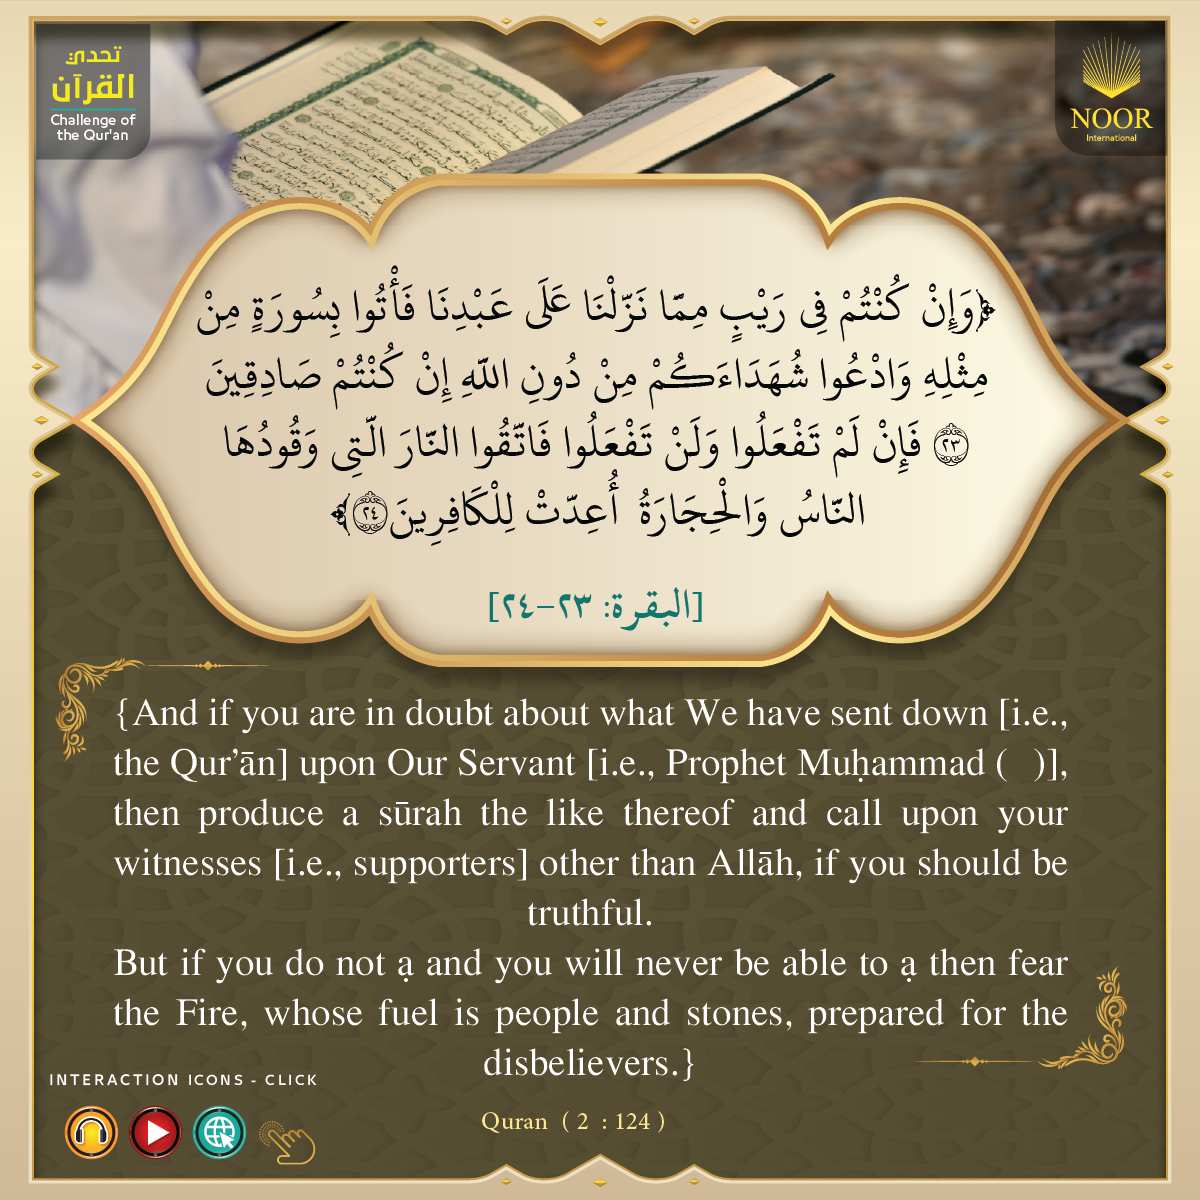 تحدي
القرآن
Challenge of
the Qur'an
NOOR
International
﴿وَإِنْ كُنْتُمْ فِي رَيْبٍ مِمَّا نَزَّلْنَا عَلَى عَبْدِنَا فَأْتُوا بِسُورَةٍ مِنْ
مِثْلِهِ وَادْعُوا شُهَدَاءَكُمْ مِنْ دُونِ اللَّهِ إِنْ كُنْتُمْ صَادِقِينَ
٢٣ فَإِنْ لَمْ تَفْعَلُوا وَلَنْ تَفْعَلُوا فَاتَّقُوا النَّارَ الَّتِي وَقُودُهَا
النَّاسُ وَالْحِجَارَةُ أُعِدَّتْ لِلْكَافِرِينَ ٢٤﴾
[البقرة: ٢٣-٢٤]
{And if you are in doubt about what We have sent down [i.e.,
the Qur’ān] upon Our Servant [i.e., Prophet Muḥammad ( )],
then produce a sūrah the like thereof and call upon your
witnesses [i.e., supporters] other than Allāh, if you should be
truthful.
But if you do not ạ and you will never be able to ạ then fear
the Fire, whose fuel is people and stones, prepared for the
disbelievers.}
INTERACTION ICONS - CLICK
Quran ( 2 : 124 )